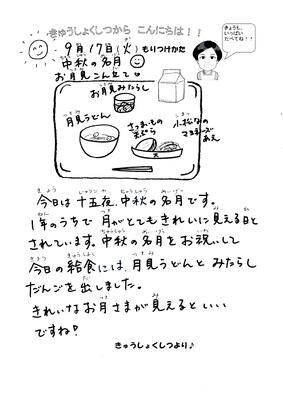 きゅうしょくしつから こんにちは！！
きょうも、
いっぱい
たべてね！！
9月17日(火) もりつけかた
中秋の名月
お月見こん立て
お月見みたらし
月見うどん
さつまいもの
天ぷら
小松なの
マヨネーズ
あえ
今日は十五夜、中秋の名月です。
1年のうちで 月がとてもきれいに見える日と
されています。中秋の名月をお祝いして
今日の給食には、月見うどんと みたらし
だんごを出しました。
きれいなお月さまが見えるといい
ですね！
きゅうしょくしつより♪